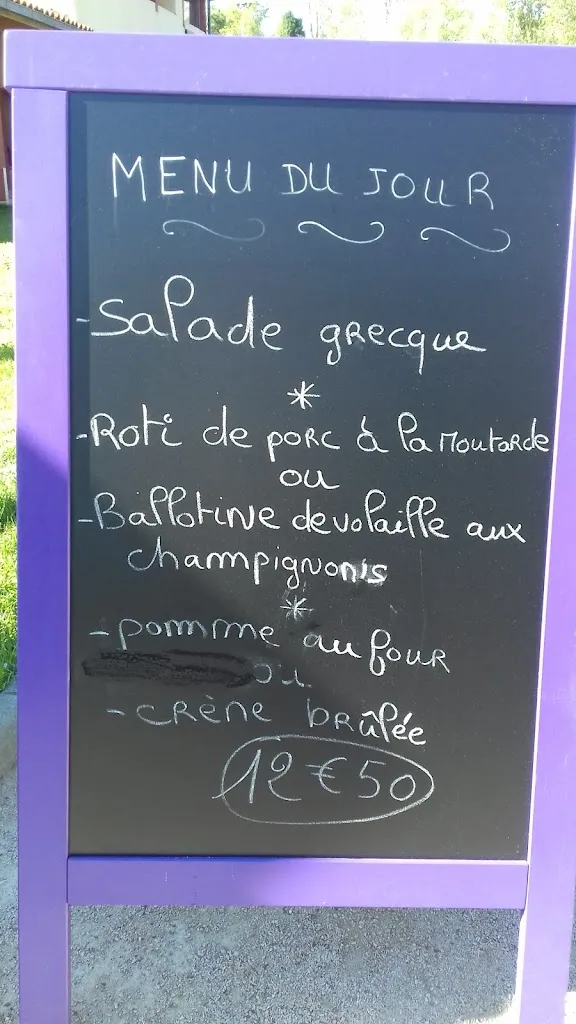 MENU DU JOUR
- Salade grecque
*
- Roti de porc à la moutarde
ou
- Ballotine de volaille aux
champignons
*
- pomme au four
ou
- crène brûlée
12€50